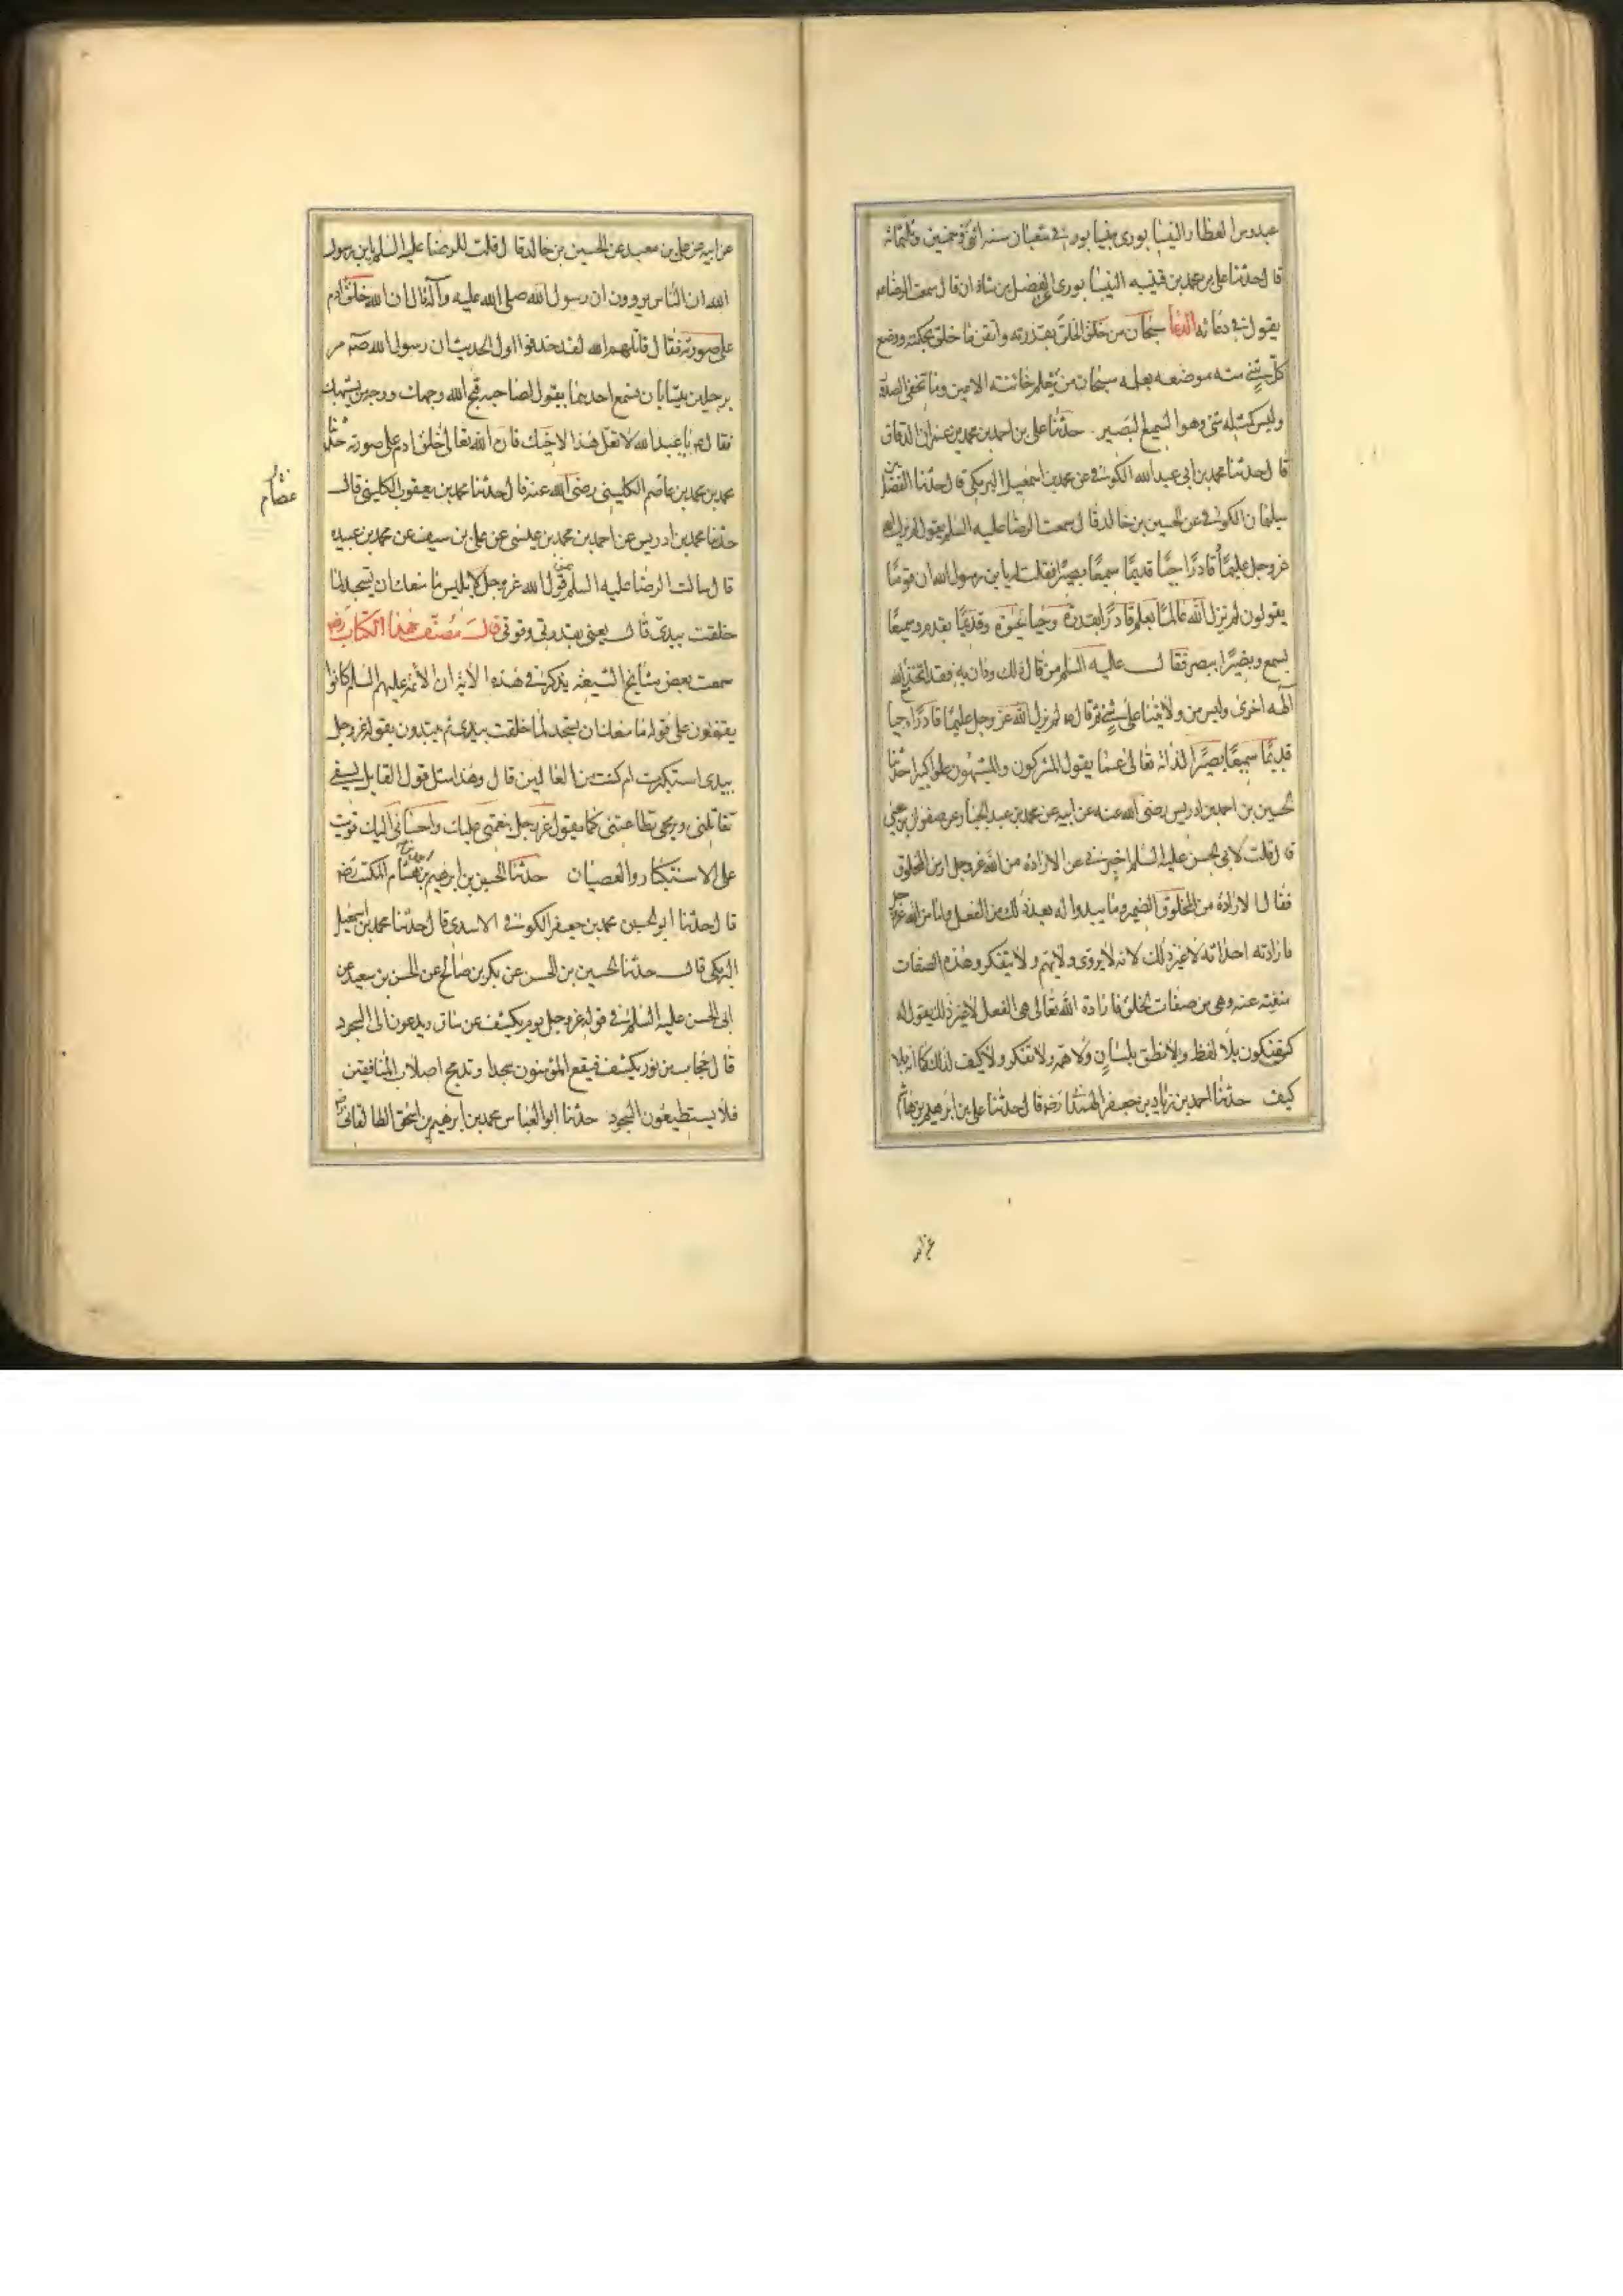 عبدوس العطار النيسابورى بنيسابور فى شعبان سنه اثنى وخمسين وثلثمائه
قال حدثنا على بن محمد بن قتيبه النيسابورى عن الفضل بن شاذان قال سمعت الرضا عم
يقول فى دعائه الدعا سبحان من خلق الخلق بقدرته واتقن ما خلق بحكمته ووضع
كل شئ منه موضعه بعلمه سبحان من يعلم خائنة الاعين وما تخفى الصدور
وليس كمثله شئ وهو السميع البصير حدثنا على بن احمد بن محمد بن عمران الدقاق
قال حدثنا محمد بن ابى عبد الله الكوفى عن محمد بن اسمعيل البرمكى قال حدثنا الفضل بن
سليمان الكوفى عن الحسين بن خالد قال سمعت الرضا عليه السلم يقول لم يزل الله
عز وجل عليمًا قادرًا حيًا قديمًا سميعًا بصيرًا فقلت له يا بن رسول الله ان قومًا
يقولون لم يزل الله عالمًا بعلم قادرًا بقدرة وحيا بحيوة وقديمًا بقدم وسميعًا
بسمع وبصيرًا ببصر فقال عليه السلم من قال ذلك ودان به فقد اتخذ مع الله
آلهه اخرى وليس من ولايتنا على شئ ثم قال عم لم يزل الله عز وجل عليمًا قادرًا حيا
قديمًا سميعًا بصيرًا لذاته تعالى عما يقول المشركون والمشبهون علوا كبيرا حدثنا
الحسين بن احمد بن ادريس رضى الله عنه عن ابيه عن محمد بن عبد الجبار عن صفوان بن يحيى
قال قلت لابى الحسن عليه السلم اخبرنى عن الارادة من الله عز وجل ومن المخلوق
فقال الارادة من المخلوق الضمير وما يبدوا له بعد ذلك من الفعل واما من الله عز وجل
فارادته احداثه لا غير ذلك لانه لا يروى ولا يهم ولا يتفكر وهذه الصفات
منفيته عنه وهى من صفات الخلق فارادة الله تعالى هى الفعل لا غير ذلك يقول له
كن فيكون بلا لفظ ولا نطق بلسان ولا همه ولا تفكر ولا كيف لذلك كما انه بلا
كيف حدثنا احمد بن زياد بن جعفر الهمدانى رضه قال حدثنا على بن ابرهيم بن هاشم
عن ابيه عن على بن معبد عن الحسين بن خالد قال قلت للرضا عليه السلم يا بن رسول
الله ان الناس يروون ان رسول الله صلى الله عليه وآله قال ان الله خلق آدم
على صورته فقال قاتلهم الله لقد حذفوا اول الحديث ان رسول الله صه مر
برجلين يتسابان فسمع احدهما يقول لصاحبه قبح الله وجهك ووجه من يشبهك
فقال صه يا عبد الله لا تقل هذا لاخيك فان الله تعالى خلق ادم على صورته حدثنا
محمد بن محمد بن عاصم الكلينى رضى الله عنه قال حدثنا محمد بن يعقوب الكلينى قال
عصام
حدثنا محمد بن ادريس عن احمد بن محمد بن عيسى عن على بن سيف عن محمد بن عبيده
قال سالت الرضا عليه السلم عن قول الله عز وجل لابليس ما منعك ان تسجد لما
خلقت بيدى قال يعنى بقدرتى وقوتى قال مصنف هذا الكتاب رضه
سمعت بعض مشايخ الشيعة يذكر فى هذه الآية ان الائمه عليهم السلم كانوا
يقفون على قوله ما منعك ان تسجد لما خلقت بيدى ثم يبتدون بقوله عز وجل
بيدى استكبرت ام كنت من العالين قال وهذا مثل قول القايل بسيفى
تقاتلنى وبرمحى تطاعننى كما يقول عز وجل بنعمتى عليك واحسانى اليك قويت
على الاستكبار والعصيان حدثنا الحسين بن ابرهيم بن احمد بن هشام المكتب رضه
قال حدثنا ابو الحسين محمد بن جعفر الكوفى الاسدى قال حدثنا محمد بن اسمعيل
البرمكى قال حدثنا الحسين بن الحسن عن بكر بن صالح عن الحسن بن سعيد عن
ابى الحسن عليه السلم فى قوله عز وجل يوم يكشف عن ساق ويدعون الى السجود
قال حجاب من نور يكشف فيقع المؤمنون سجدا وتدمج اصلاب المنافقين
فلا يستطيعون السجود حدثنا ابو العباس محمد بن ابرهيم بن اسحق الطالقانى رضه